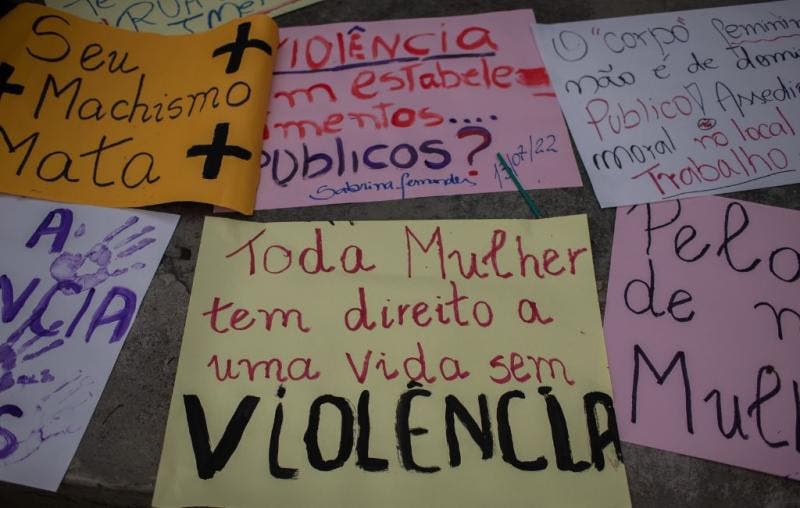 RUA
Seu
Machismo
Mata
VIOLÊNCIA
em estabele
imentos....
PÚBLICOS?
Sabrina fernandes 13/07/22
O "corpo" feminin
não é de domi
Público! Assedi
moral no local
Trabalho
A
NCIA
S
Toda Mulher
tem direito a
uma vida sem
VIOLÊNCIA
Pelo
de
Mul